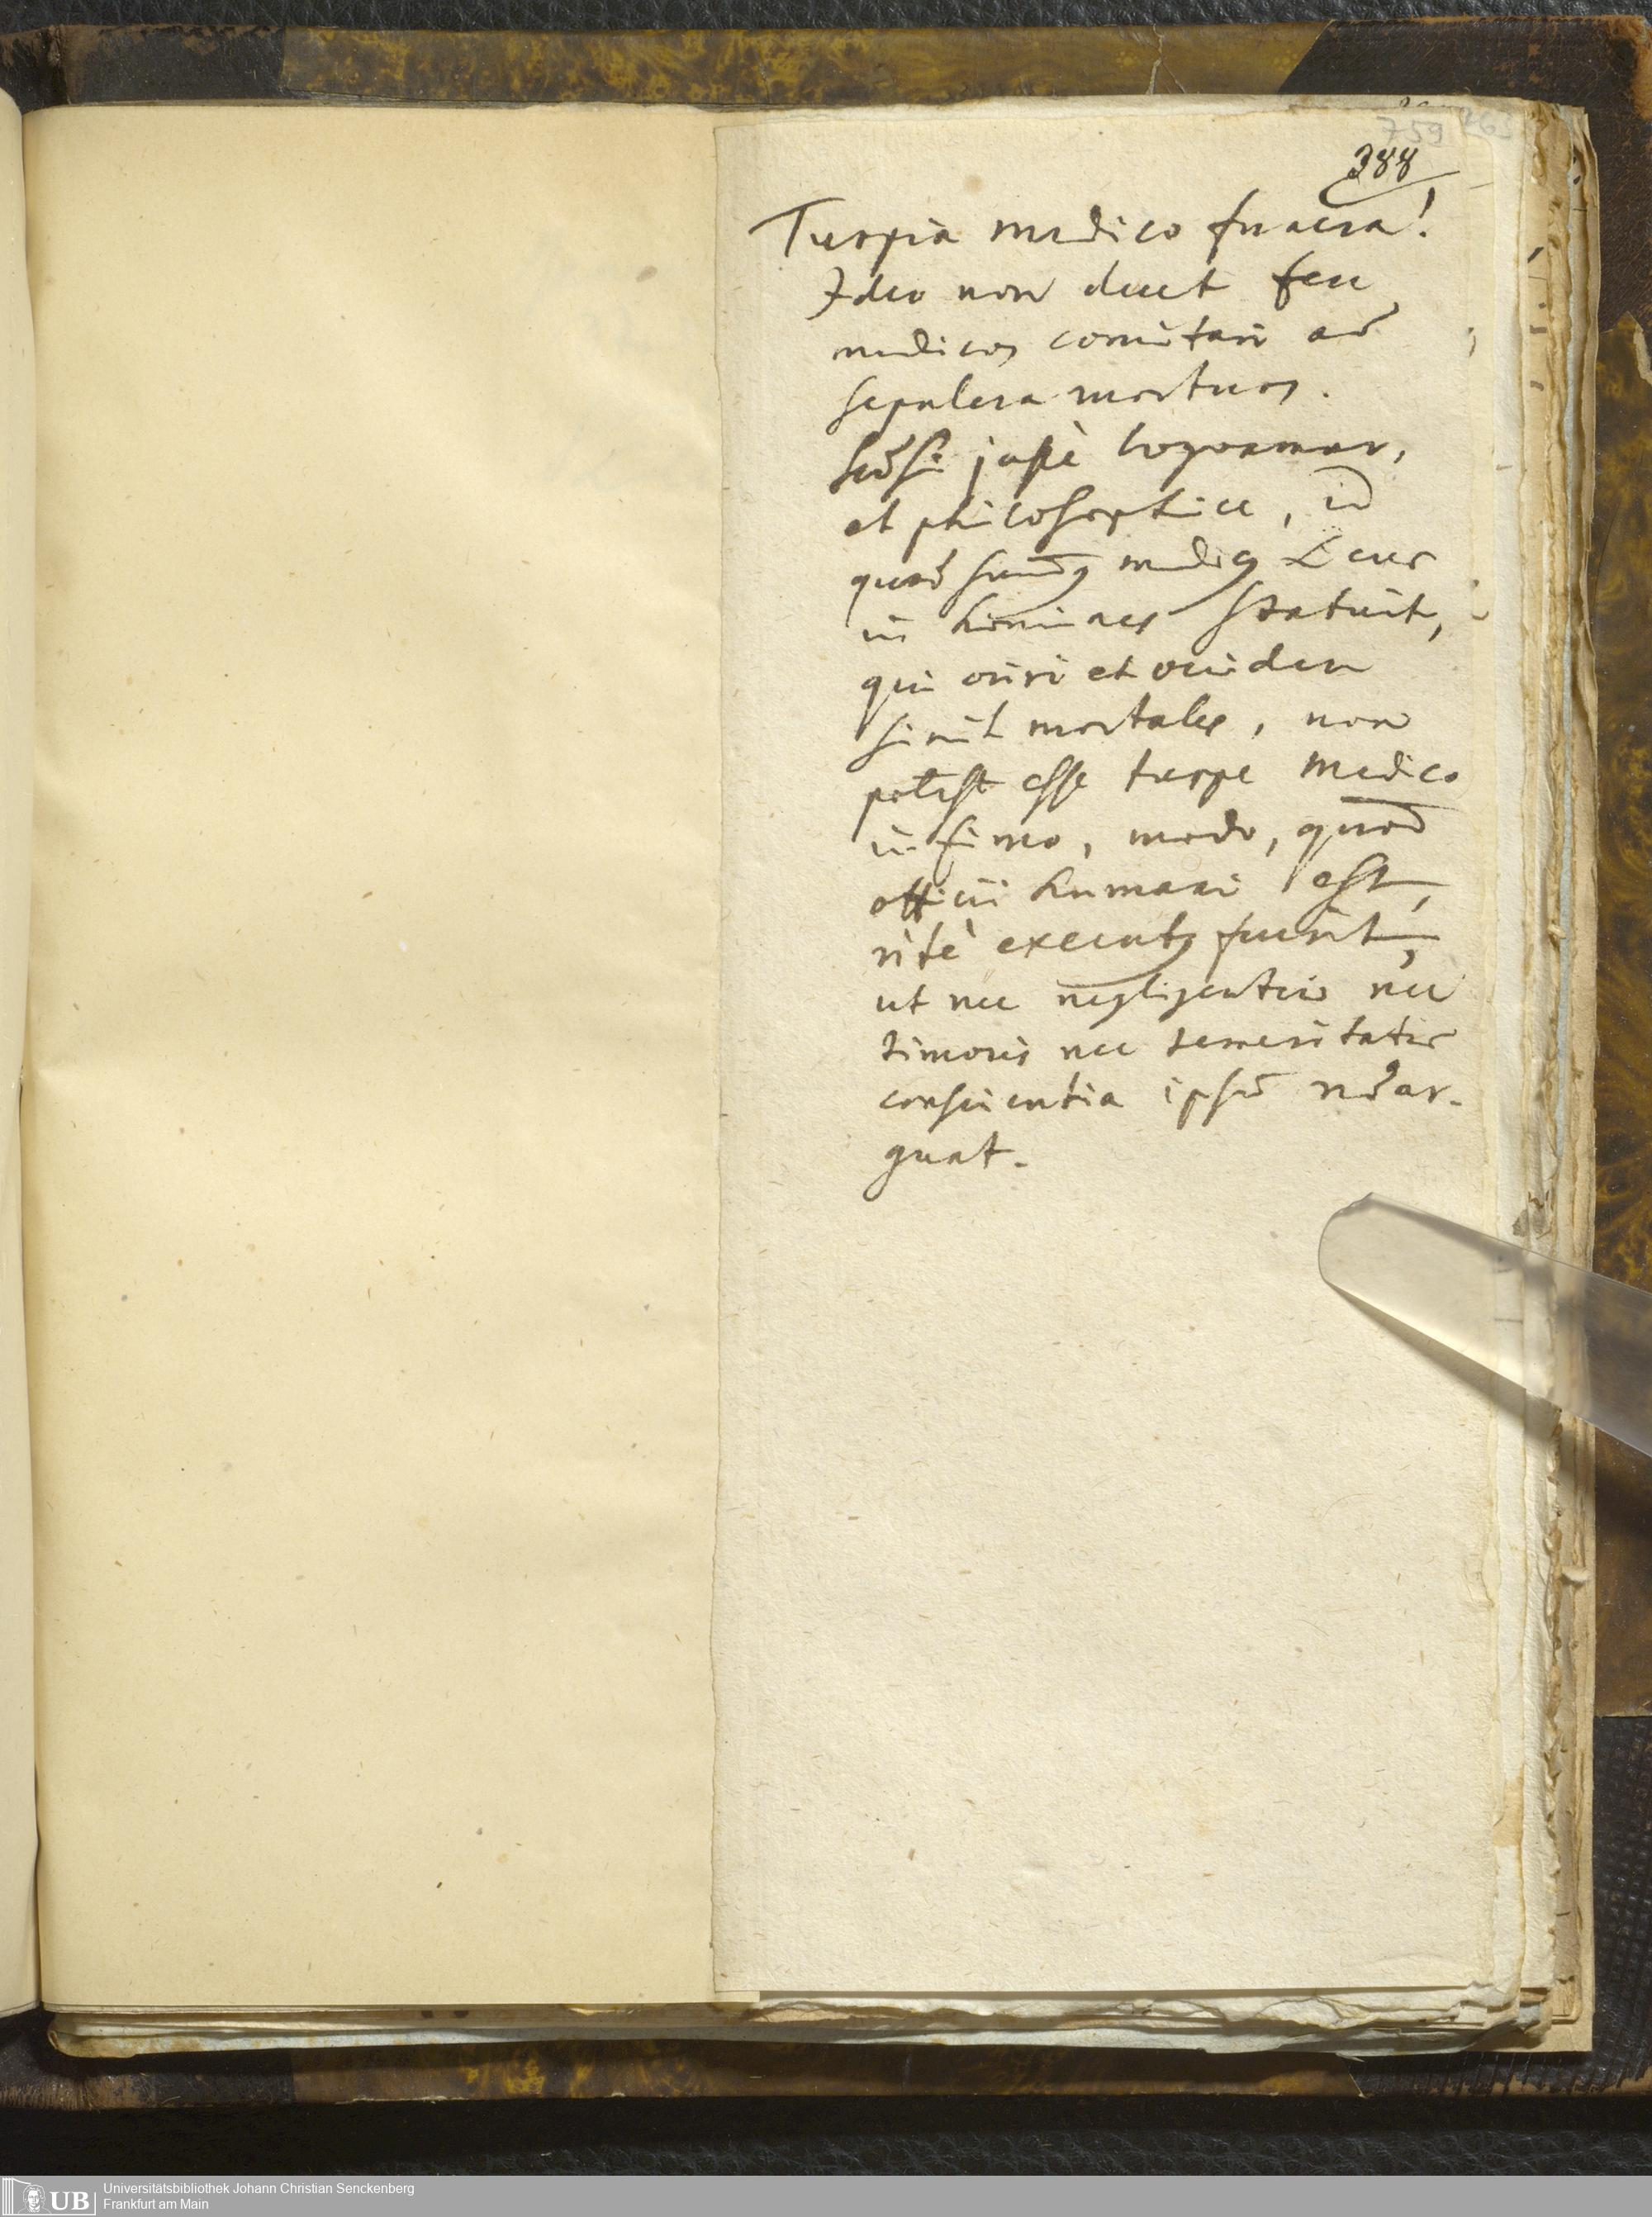 759
388
Turpia medico funera!
Ideo non decet
medicos comitari ad
sepulcra mortuos.
Sed si loquamur,
et philosophice, id
quod sum̄ medic9 Deus
in homines statuit,
qui oriri et occidere
sinit mortales, non
potest esse turpe medico
infimo, modo, quod
officii humani est,
ritè execut9 fuerit,
ut nec negligentiae nec
timoris nec temeritatis
conscientia ipsū redar-
guat.
UB
Universitätsbibliothek Johann Christian Senckenberg
Frankfurt am Main